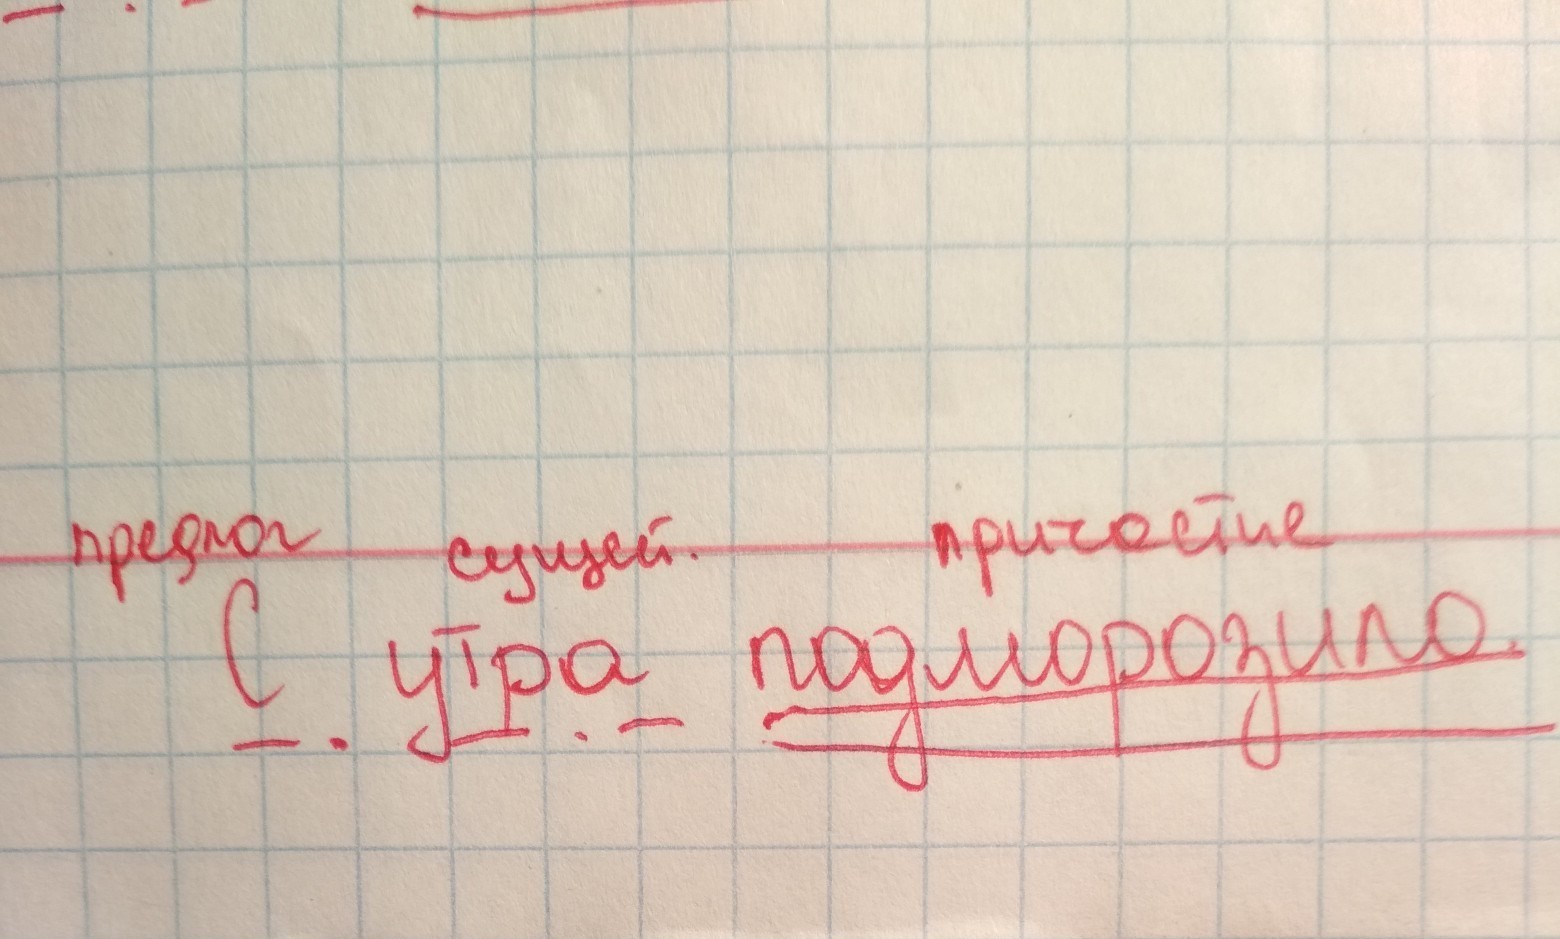 предлог сущей. причастие
С утра подморозило.